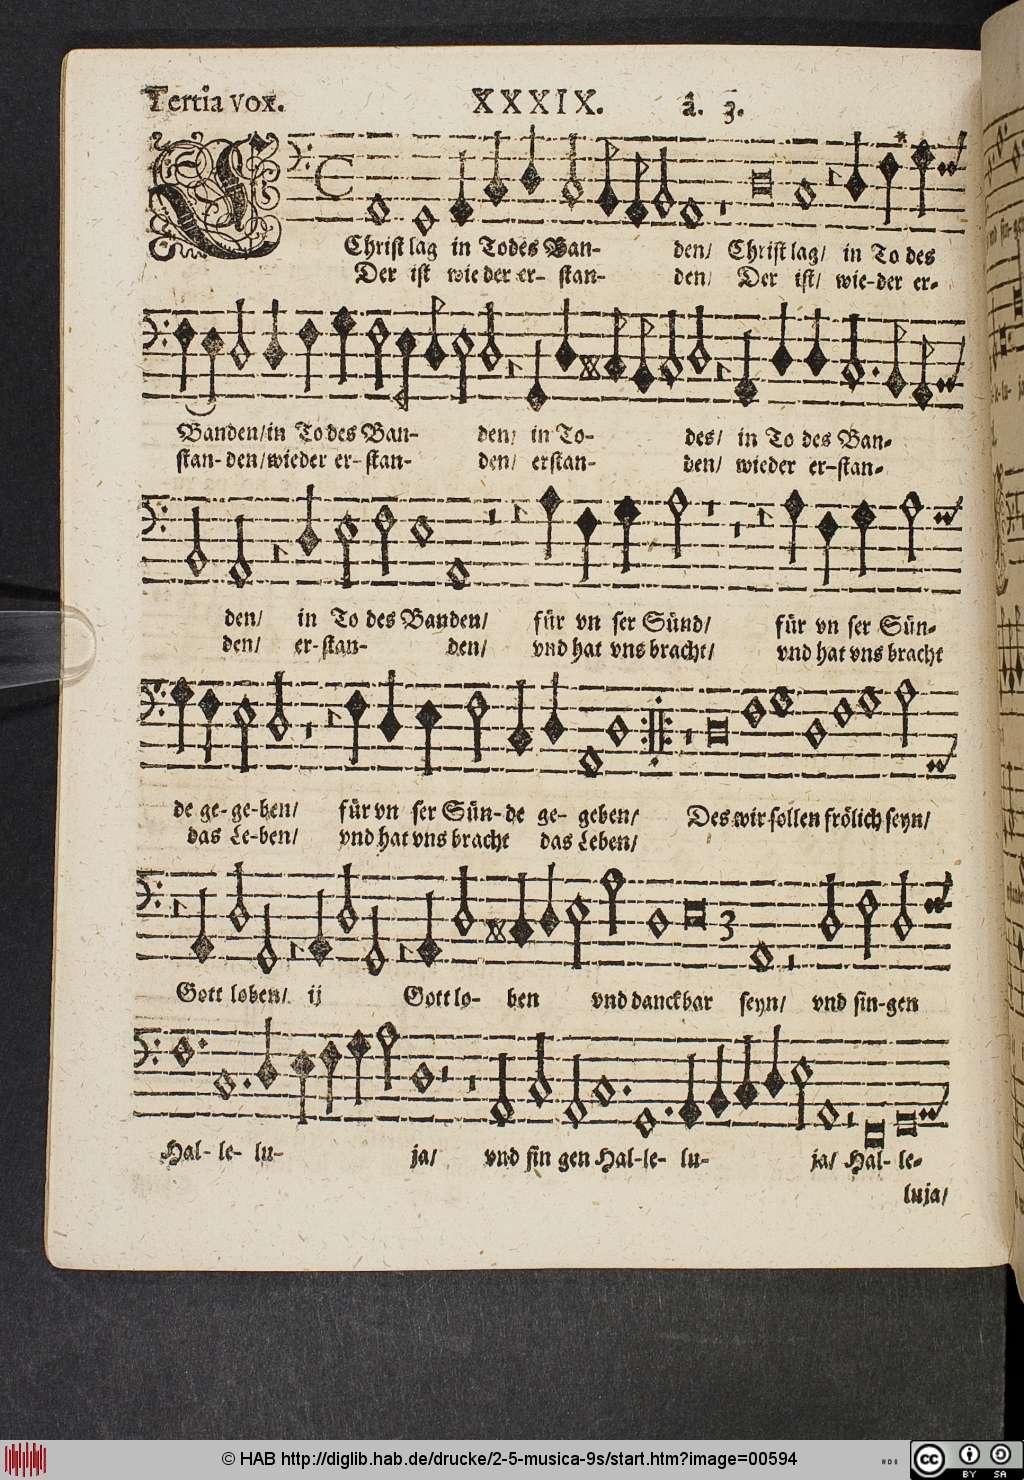 Tertia vox. XXXIX. â. 3.
Christ lag in Todes Ban- den/ Christ lag/ in To des
Der ist wie der er- stan- den/ Der ist/ wie-der er-
Banden/in Todes Ban- den/ in To- des/ in To des Ban-
stan-den/wieder er-stan- den/ erstan- den/ wieder er-stan-
den/ in To des Banden/ für vn ser Sünd/ für vn ser Sün-
den/ er-stan- den/ vnd hat vns bracht/ vnd hat vns bracht
de ge-ge-ben/ für vn ser Sün-de ge- geben/ Des wir sollen frölich seyn/
das Le-ben/ vnd hat vns bracht das Leben/
3
Gott loben/ ij Gott lo- ben vnd danckbar seyn/ vnd sin-gen
Hal- le- lu- ja/ vnd sin gen Hal-le- lu- ja/ Hal- le-
luja/
© HAB http://diglib.hab.de/drucke/2-5-musica-9s/start.htm?image=00594
cc BY SA